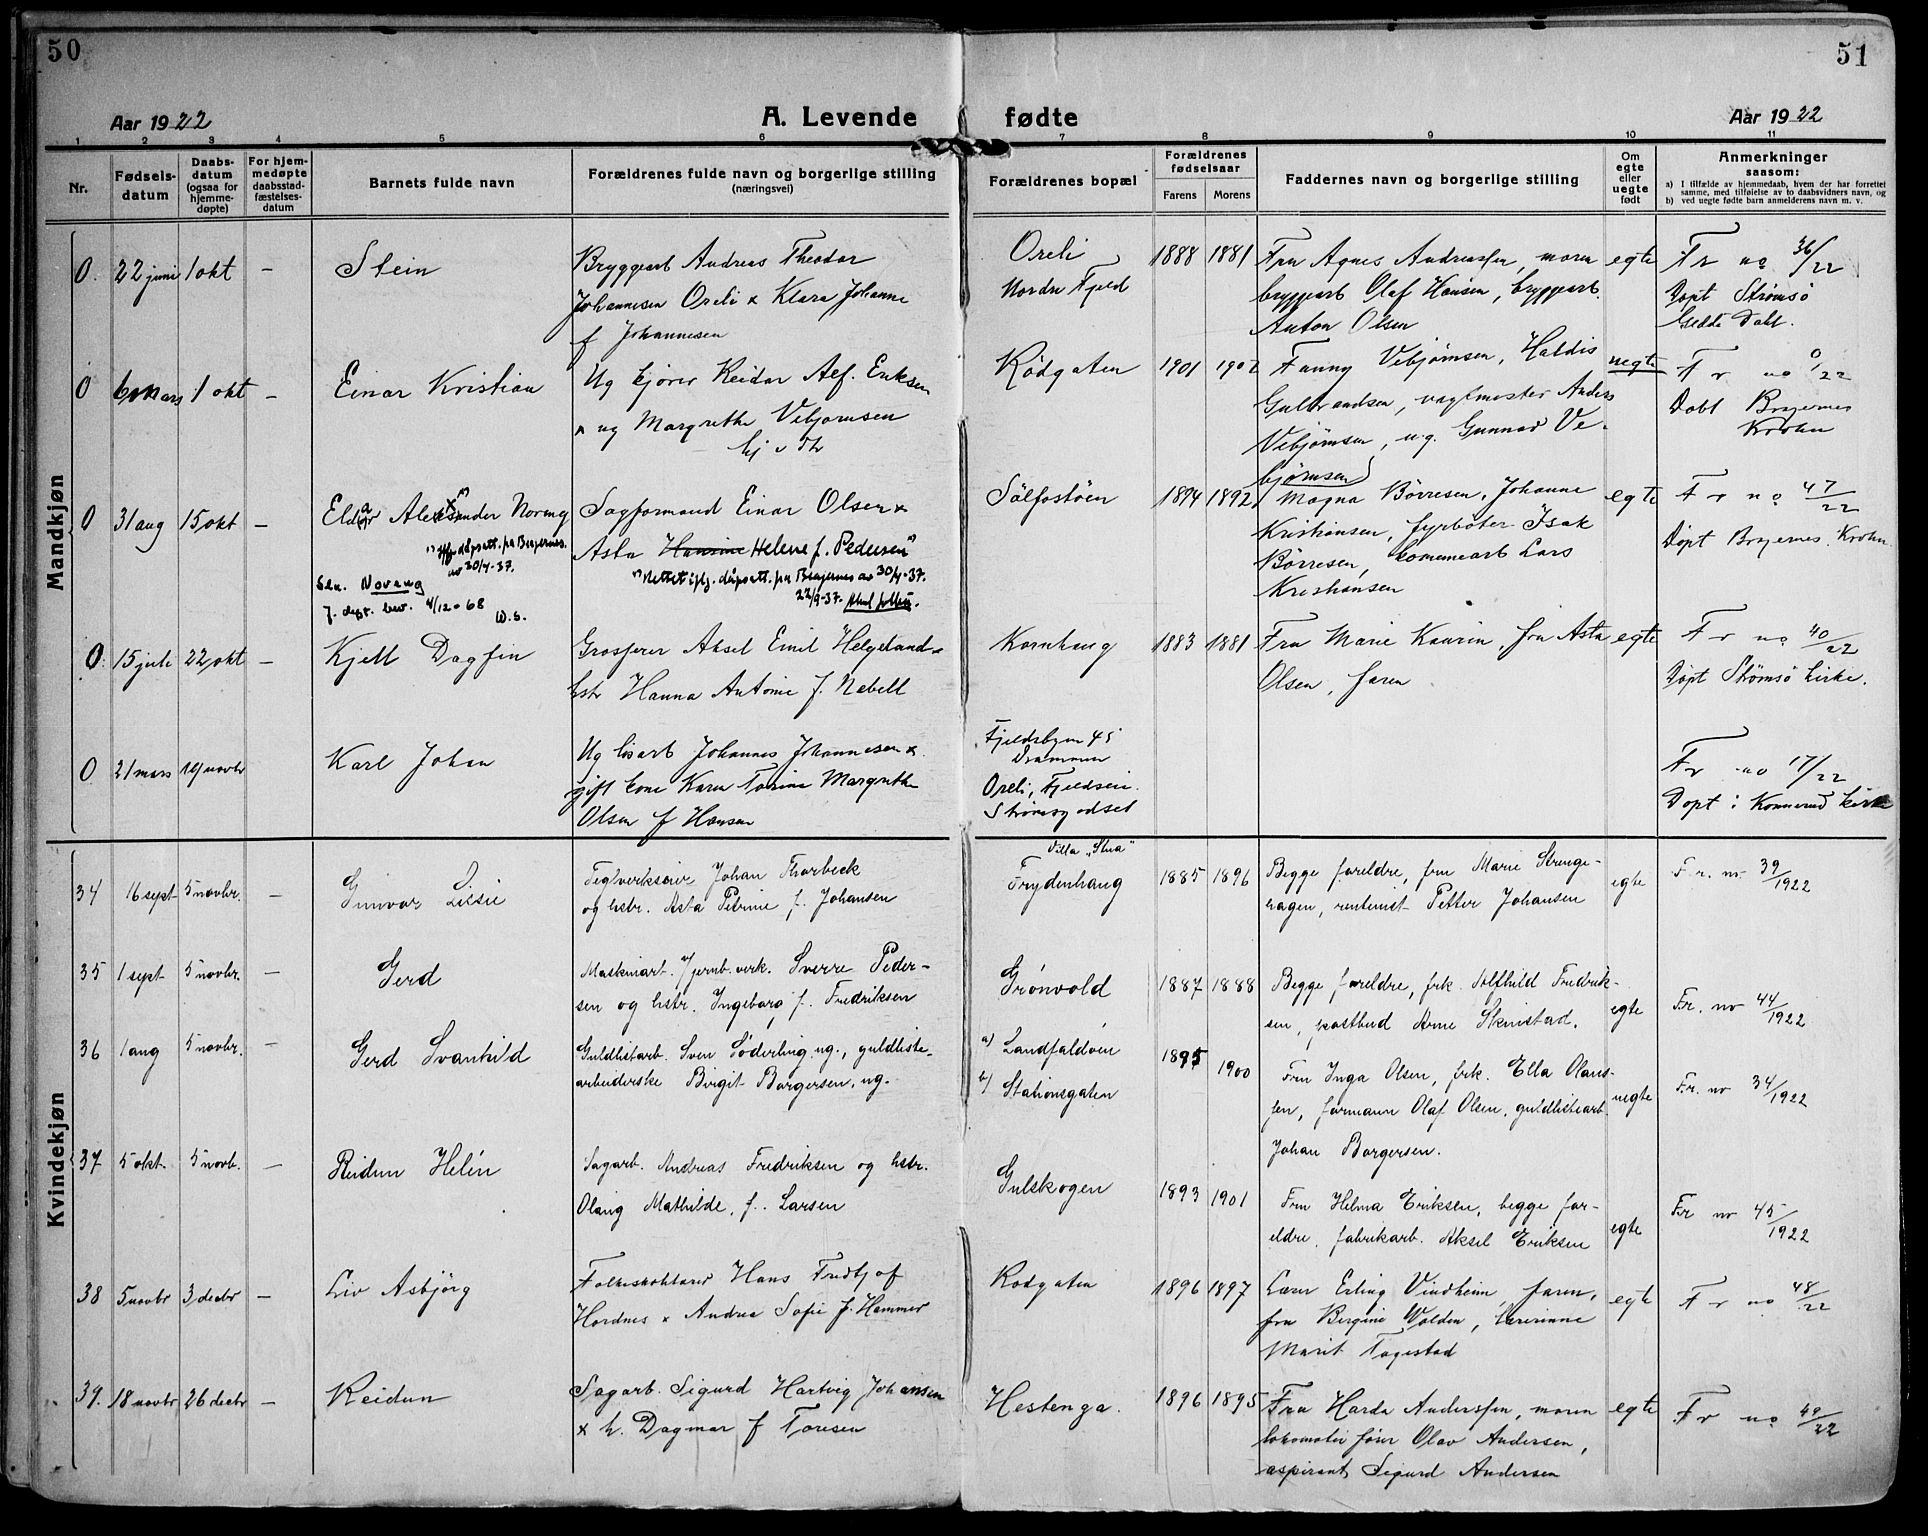 50
51
Aar 1922
A. Levende
fødte
Aar 1922
1 2 3 4 5 6 7 8 9 10 11
Nr.
Fødsels-
datum
Daabs-
datum
(ogsaa for
hjemme-
døpte)
For hjem-
medøpte
daabsstad-
fæstelses-
datum
Barnets fulde navn
Forældrenes fulde navn og borgerlige stilling
(næringsvei)
Forældrenes bopæl
Forældrenes
fødselsaar
Farens Morens
Faddernes navn og borgerlige stilling
Om
egte
eller
uegte
født
Anmerkninger
saasom:
a) I tilfælde av hjemmedaab, hvem der har forrettet
samme, med tilføielse av to daabsvidners navn, og
b) ved uegte fødte barn anmelderens navn m. v.
Mandkjøn
0. 22 juni 1 okt – Stein
Bryggearb Andreas Theodor
Johannesen Oreli x Klara Johanne
f Johannesen
Oreli
Nordre Fjeld
1888 1881
Fru Agnes Andreassen, moren
bryggearb Olaf Hansen, bryggearb.
Anton Olsen
egte
Fr no 36/22
Døpt Strømsø
Gedde Dahl.
0 6 mars 1 okt – Einar Kristian
Ug kjører Reidar Alf. Eriksen
x ug Margrethe Vebjørnsen
Rödgaten
1901 1902
Fanny Vebjørnsen, Haldis
Gulbrandsen, vagtmester Anders
Vebjørnsen, ug. Gunnar Ve-
bjørnsen
uegte
Fr no 0/22
Døbt Bragernes
Krohn
0 31 aug 15 okt – Eldar Alexander Noreng
dåpsatt. fra Bragernes.
av 20/4-37.
Norang
4/12-68
W.S.
Sagformand Einar Olsen x
Asta Hansine Helene f. Pedersen
Rettet iflg. dåpsatt. fra Bragernes av 30/4-37.
22/9-37.
Sølfastøen
1894 1892
Magna Børresen, Johanne
Kristiansen, fyrbøter Isak
Børresen, Lars
Kristiansen
egte
Fr no 47/22
Døpt Bragernes. Krohn
0. 15 juli 22 okt – Kjell Dagfin
Grosserer Aksel Emil Helgeland x
hstr Hanna Antonie f. Nebell
Kornhaug
1883 1881
Fru Marie Kaurin, fru Asta
Olsen, faren
egte
Fr no 40/22
Døpt Strømsø kirke.
0 21 mars 19 novbr Karl Johan
Ug Johannes Johannesen x
gift kone Karen Torine Margrethe
Olsen f Hansen
Fjeldsbyen 45
Drammen
Oreli, Fjeldsein.
Strømsgodset
Fr no 17/22
Døpt i Konnerud kirke
Kvindekjøn
34 16 sept 5 novbr. – Gunvor Lilsie
Teglverkseier Johan Thorbeck
og hstr. Asta Petrine f. Johansen
Villa „Stua“
Frydenhaug
1885 1896
Begge foreldre, fru Marie Strenge-
hagen, rentenist Petter Johansen
egte
Fr. no 39/1922
35 1 sept 5 novbr. – Gerd
Maskinarb. Jernb.verk. Sverre Peder-
sen og hstr. Ingeborg f. Fredriksen
Grønvold
1887 1888
Begge foreldre, frk. Solfhild Fredrik-
sen, postbud Arne Skinstad.
egte
Fr. no 44/1922
36 1 aug 5 novbr. – Gerd Svanhild
Guldlistarb. Sven Söderling ug., guldliste-
arbeiderske Birgit Borgersen, ug.
a) Landfaldøen
b) Stationsgaten
1895 1900
Fru Inga Olsen, frk. Ella Olaus-
sen, formann Olaf Olsen, guldlistearb.
Johan Borgersen.
uegte
Fr. no 34/1922
37 5 okt. 5 novb. – Reidun Helén
Sagarb. Andreas Fredriksen og hstr.
Olaug Mathilde, f. Larsen
Gulskogen
1893 1901
Fru Helma Eriksen, begge for-
eldre, fabrikarb. Aksel Eriksen
egte
Fr no 45/1922
38 5 novbr 3 decbr – Liv Asbjørg
Hans Fredtjof
Hordnes x Andrea Sofie f. Hammer
Rodgaten
1896 1897
Lærer Erling Vindheim, faren,
fru Bergine Wolden, lærerinne
Marit Fagestad
egte
Fr no 48/22
39. 18 novbr 26 decbr – Reidun
Sagarb. Sigurd Hartvig Johansen
x h. Dagmar f Toresen
Hestenga.
1896 1895
Fru Harda Anderssen, moren
lokomotivfører Olav Andersen,
aspirant Sigurd Andersen
egte
Fr no 49/22